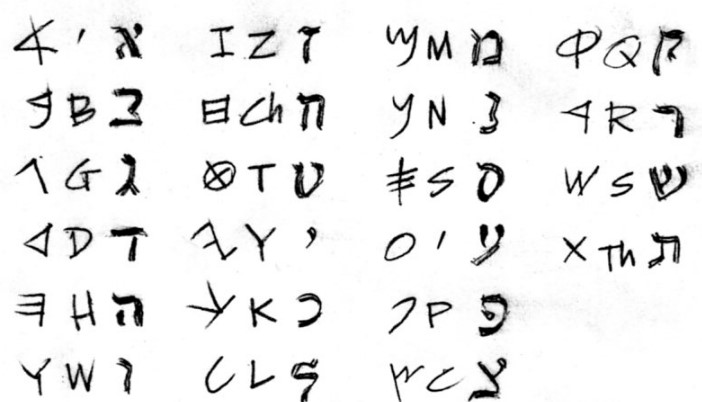 𐤀 ' א 𐤆 Z ז 𐤌 M מ 𐤒 Q ק
𐤁 B ב 𐤇 Ch ח 𐤍 N נ 𐤓 R ר
𐤂 G ג 𐤈 T ט 𐤎 S ס 𐤔 S ש
𐤃 D ד 𐤉 Y י 𐤏 ' ע 𐤕 Th ת
𐤄 H ה 𐤊 K כ 𐤐 P פ
𐤅 W ו 𐤋 L ל 𐤑 C צ